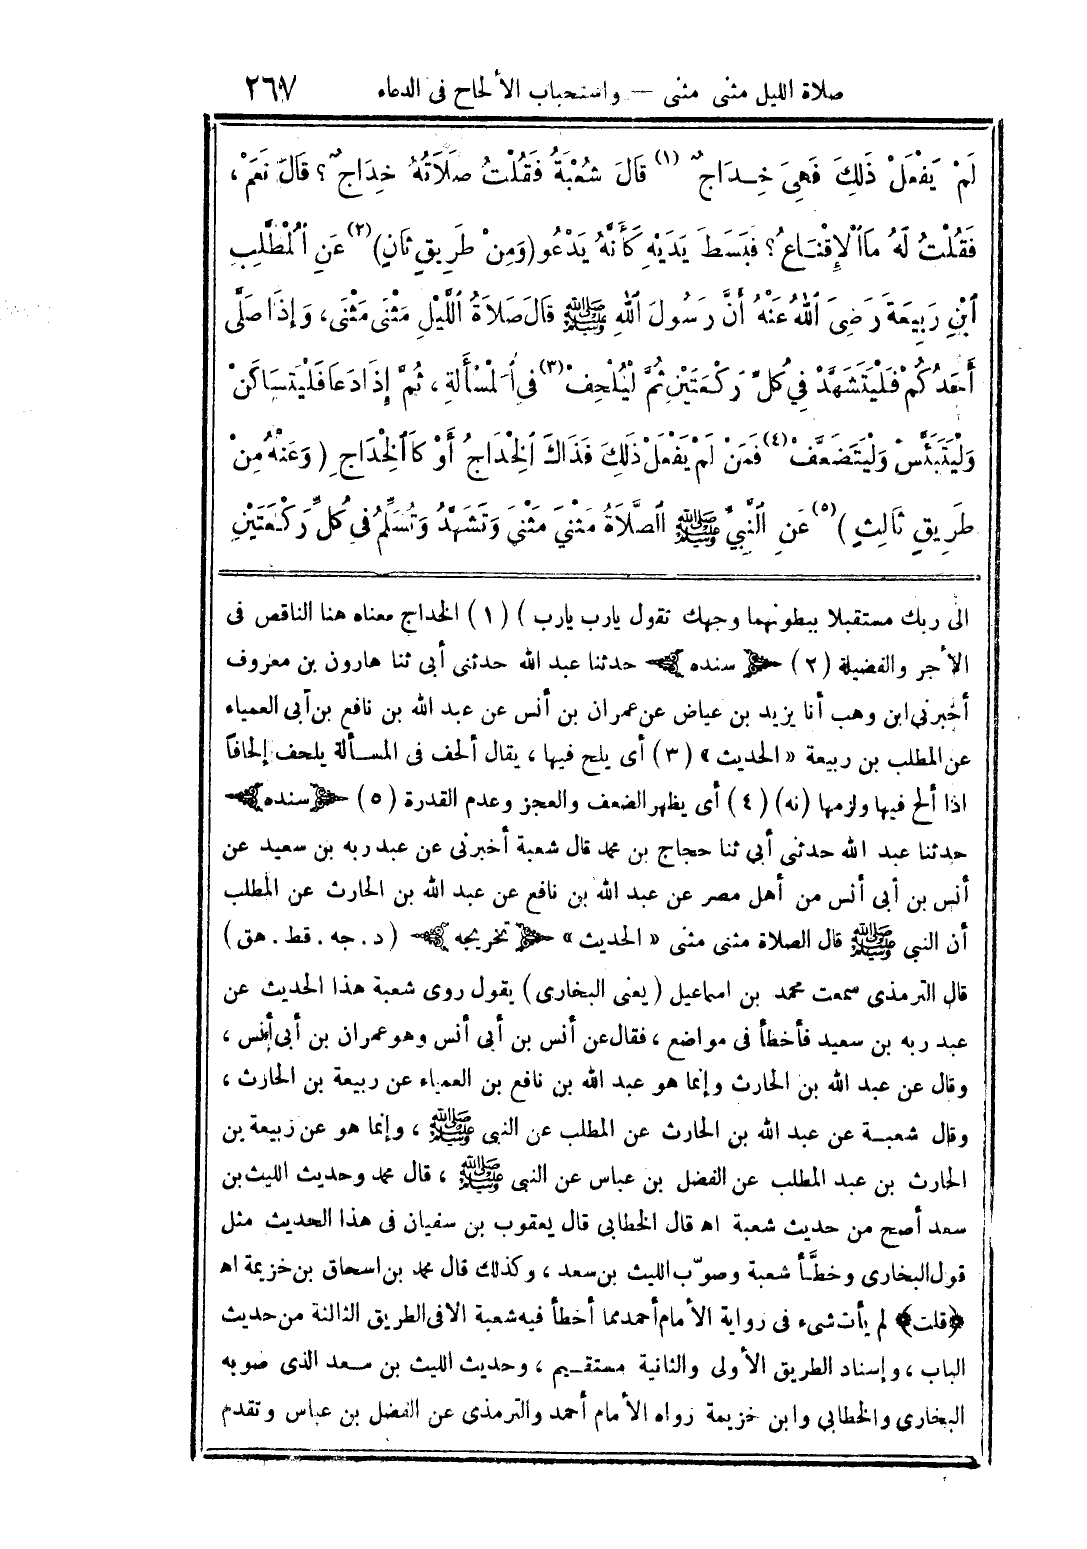 صلاة الليل مثنى مثنى — واستحباب الألحاح فى الدعاء ٢٦٧
لَمْ يَفْعَلْ ذَلِكَ فَهِيَ خِدَاجٌ (١) قَالَ شُعْبَةُ فَقُلْتُ صَلَاتُهُ خِدَاجٌ؟ قَالَ نَعَمْ،
فَقُلْتُ لَهُ مَا الْإِقْنَاعُ؟ فَبَسَطَ يَدَيْهِ كَأَنَّهُ يَدْعُو (وَمِنْ طَرِيقٍ ثَانٍ) (٢) عَنِ الْمُطَّلِبِ
ابْنِ رَبِيعَةَ رَضِىَ اللهُ عَنْهُ أَنَّ رَسُولَ اللهِ ﷺ قَالَ صَلَاةُ اللَّيْلِ مَثْنَى مَثْنَى، وَإِذَا صَلَّى
أَحَدُكُمْ فَلْيَتَشَهَّدْ فِي كُلِّ رَكْعَتَيْنِ ثُمَّ لْيُلْحِفْ (٣) فِى الْمَسْأَلَةِ، ثُمَّ إِذَا دَعَا فَلْيَتَسَاكَنْ
وَلْيَتَبَئَّسْ وَلْيَتَضَعَّفْ (٤) فَمَنْ لَمْ يَفْعَلْ ذَلِكَ فَذَاكَ الْخِدَاجُ أَوْ كَالْخِدَاجِ (وَعَنْهُ مِنْ
طَرِيقٍ ثَالِثٍ) (٥) عَنِ النَّبِيِّ ﷺ الصَّلَاةُ مَثْنَى مَثْنَى وَتَشَهَّدُ وَتُسَلِّمُ فِى كُلِّ رَكْعَتَيْنِ
الى ربك مستقبلا ببطونهما وجهك تقول يارب يارب) (١) الخداج معناه هنا الناقص فى
الأجر والفضيلة (٢) ﴿سنده﴾ حدثنا عبد الله حدثنى أبى ثنا هارون بن معروف
أخبرنى ابن وهب أنا يزيد بن عياض عن عمران بن أنس عن عبد الله بن نافع بن أبى العمياء
عن المطلب بن ربيعة «الحديث» (٣) أى يلح فيها، يقال ألحف فى المسألة يلحف إلحافاً
اذا ألح فيها ولزمها (نه) (٤) أى يظهر الضعف والعجز وعدم القدرة (٥) ﴿سنده﴾
حدثنا عبد الله حدثنى أبي ثنا حجاج بن محمد قال شعبة أخبرنى عن عبد ربه بن سعيد عن
أنس بن أبى أنس من أهل مصر عن عبد الله بن نافع عن عبد الله بن الحارث عن المطلب
أن النبى ﷺ قال الصلاة مثنى مثنى «الحديث» ﴿تخريجه﴾ (د. جه. قط. هق)
قال الترمذى سمعت محمد بن اسماعيل (يعنى البخارى) يقول روى شعبة هذا الحديث عن
عبد ربه بن سعيد فأخطأ فى مواضع، فقال عن أنس بن أبى أنس وهو عمران بن أبى أنس،
وقال عن عبد الله بن الحارث وإنما هو عبد الله بن نافع بن العمياء عن ربيعة بن الحارث،
وقال شعبة عن عبد الله بن الحارث عن المطلب عن النبى ﷺ، وإنما هو عن ربيعة بن
الحارث بن عبد المطلب عن الفضل بن عباس عن النبى ﷺ، قال محمد وحديث الليث بن
سعد أصح من حديث شعبة اه قال الخطابى قال يعقوب بن سفيان فى هذا الحديث مثل
قول البخارى وخطَّأ شعبة وصوّب الليث بن سعد، وكذلك قال محمد بن اسحاق بن خزيمة اه
﴿قلت﴾ لم يأت شىء فى رواية الأمام أحمد مما أخطأ فيه شعبة الا فى الطريق الثالثة من حديث
الباب، وإسناد الطريق الأولى والثانية مستقيم، وحديث الليث بن سعد الذى صوبه
البخارى والخطابي وابن خزيمة رواه الأمام أحمد والترمذى عن الفضل بن عباس وتقدم